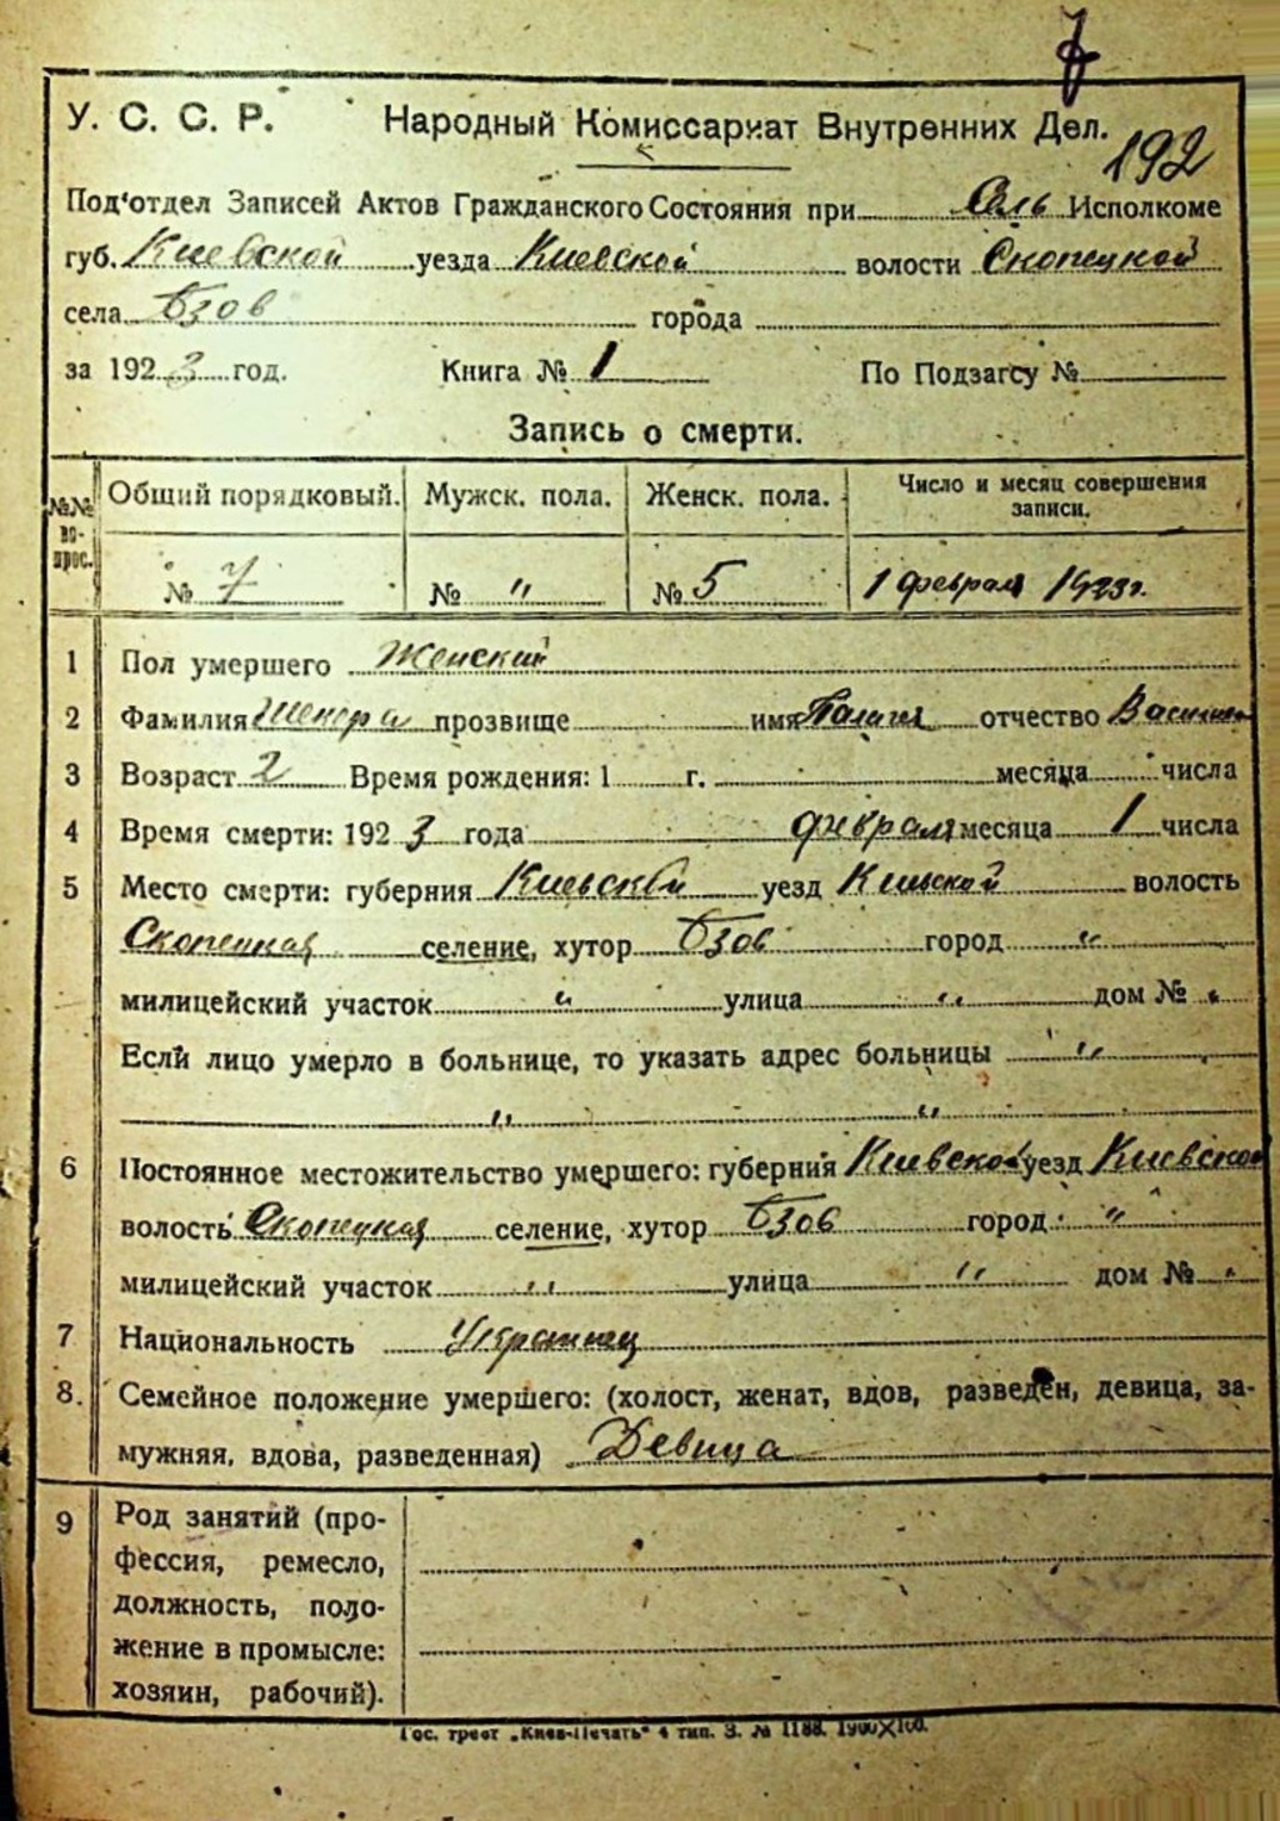 7
У. С. С. Р. Народный Комиссариат Внутренних Дел.
192
Под'отдел Записей Актов Гражданского Состояния при Сель Исполкоме
губ. Киевской уезда Киевской волости Скопецкой
села Бзов города
за 1923 год. Книга № 1 По Подзагсу №
Запись о смерти.
№№ во-прос. Общий порядковый. Мужск. пола. Женск. пола. Число и месяц совершения записи.
№ 7 № " № 5 1 февраля 1923 г.
1 Пол умершего Женский
2 Фамилия Шекера прозвище имя отчество
3 Возраст 2 Время рождения: 1 г. месяца числа
4 Время смерти: 1923 года февраля месяца 1 числа
5 Место смерти: губерния Киевской уезд Киевской волость
Скопецкая селение, хутор Бзов город "
милицейский участок " улица " дом № "
Если лицо умерло в больнице, то указать адрес больницы "
" "
6 Постоянное местожительство умершего: губерния Киевской уезд Киевской
волость Скопецкая селение, хутор Бзов город "
милицейский участок " улица " дом № "
7 Национальность Украинец
8. Семейное положение умершего: (холост, женат, вдов, разведен, девица, за-
мужняя, вдова, разведенная) Девица
9 Род занятий (про-
фессия, ремесло,
должность, поло-
жение в промысле:
хозяин, рабочий).
Гос. трест „Киев-Печать" 4 тип. З. № 1188. 1900X100.